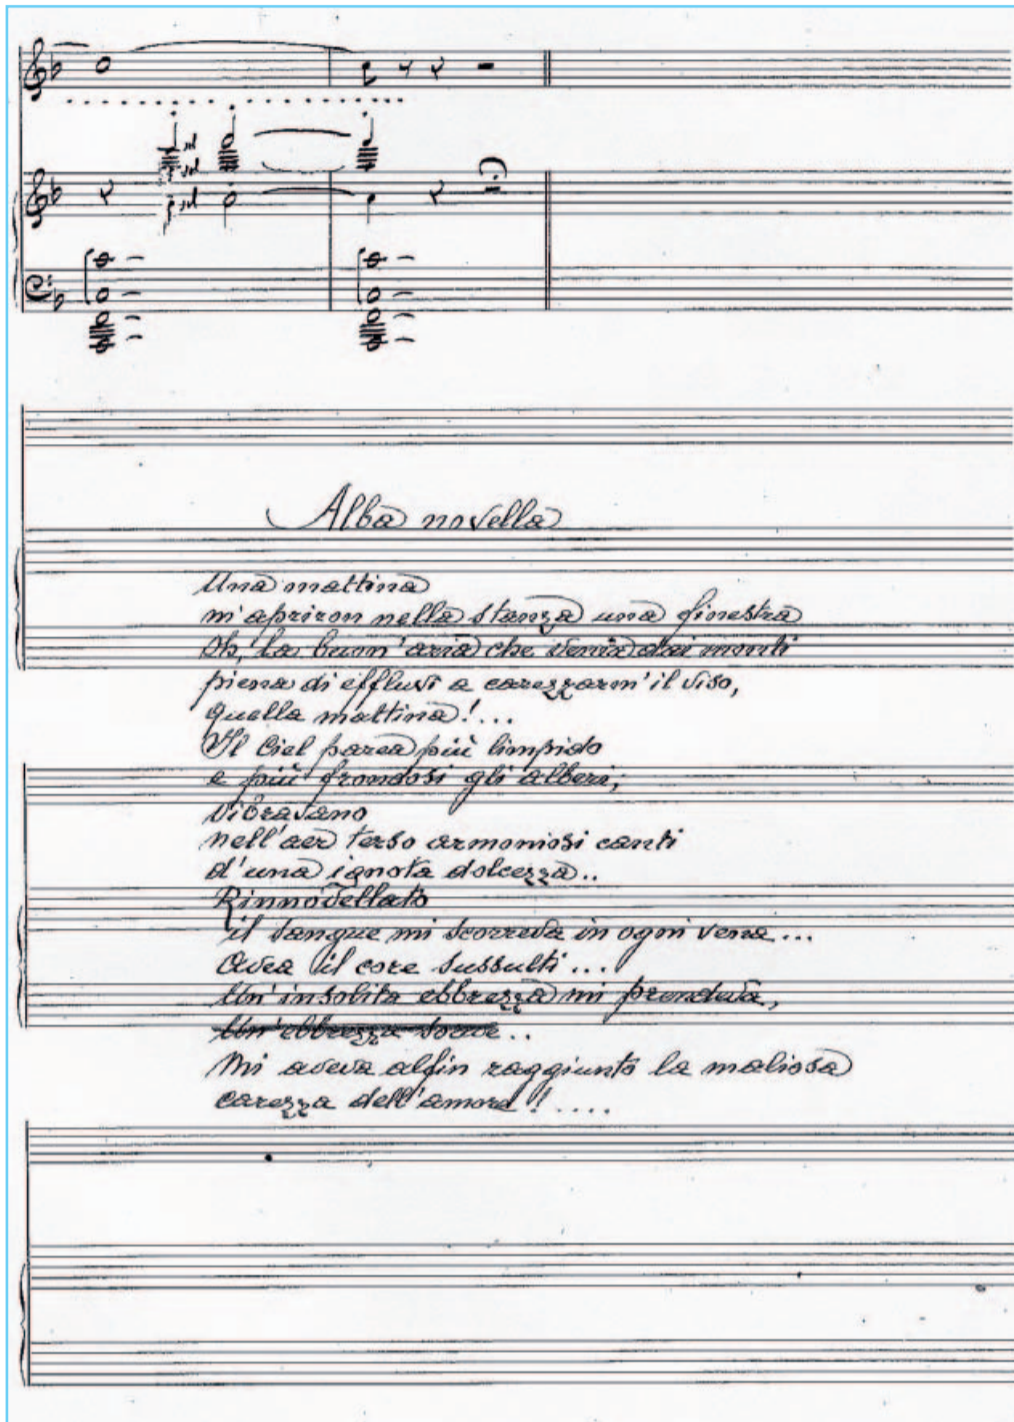 Alba novella
Una mattina
m'apriron nella stanza una finestra
Oh, la buon'aria che venia dai monti
piena di effluvi a carezzarm'il viso,
quella mattina!...
Il Ciel parea più limpido
e più frondosi gli alberi;
vibravano
nell'aer terso armoniosi canti
d'una ignota dolcezza..
Rinnovellato
il sangue mi scorreva in ogni vena...
Avea il core sussulti...
Un'insolita ebbrezza mi prendeva,
Un'ebbrezza soave..
Mi aveva alfin raggiunto la maliosa
carezza dell'amore!....